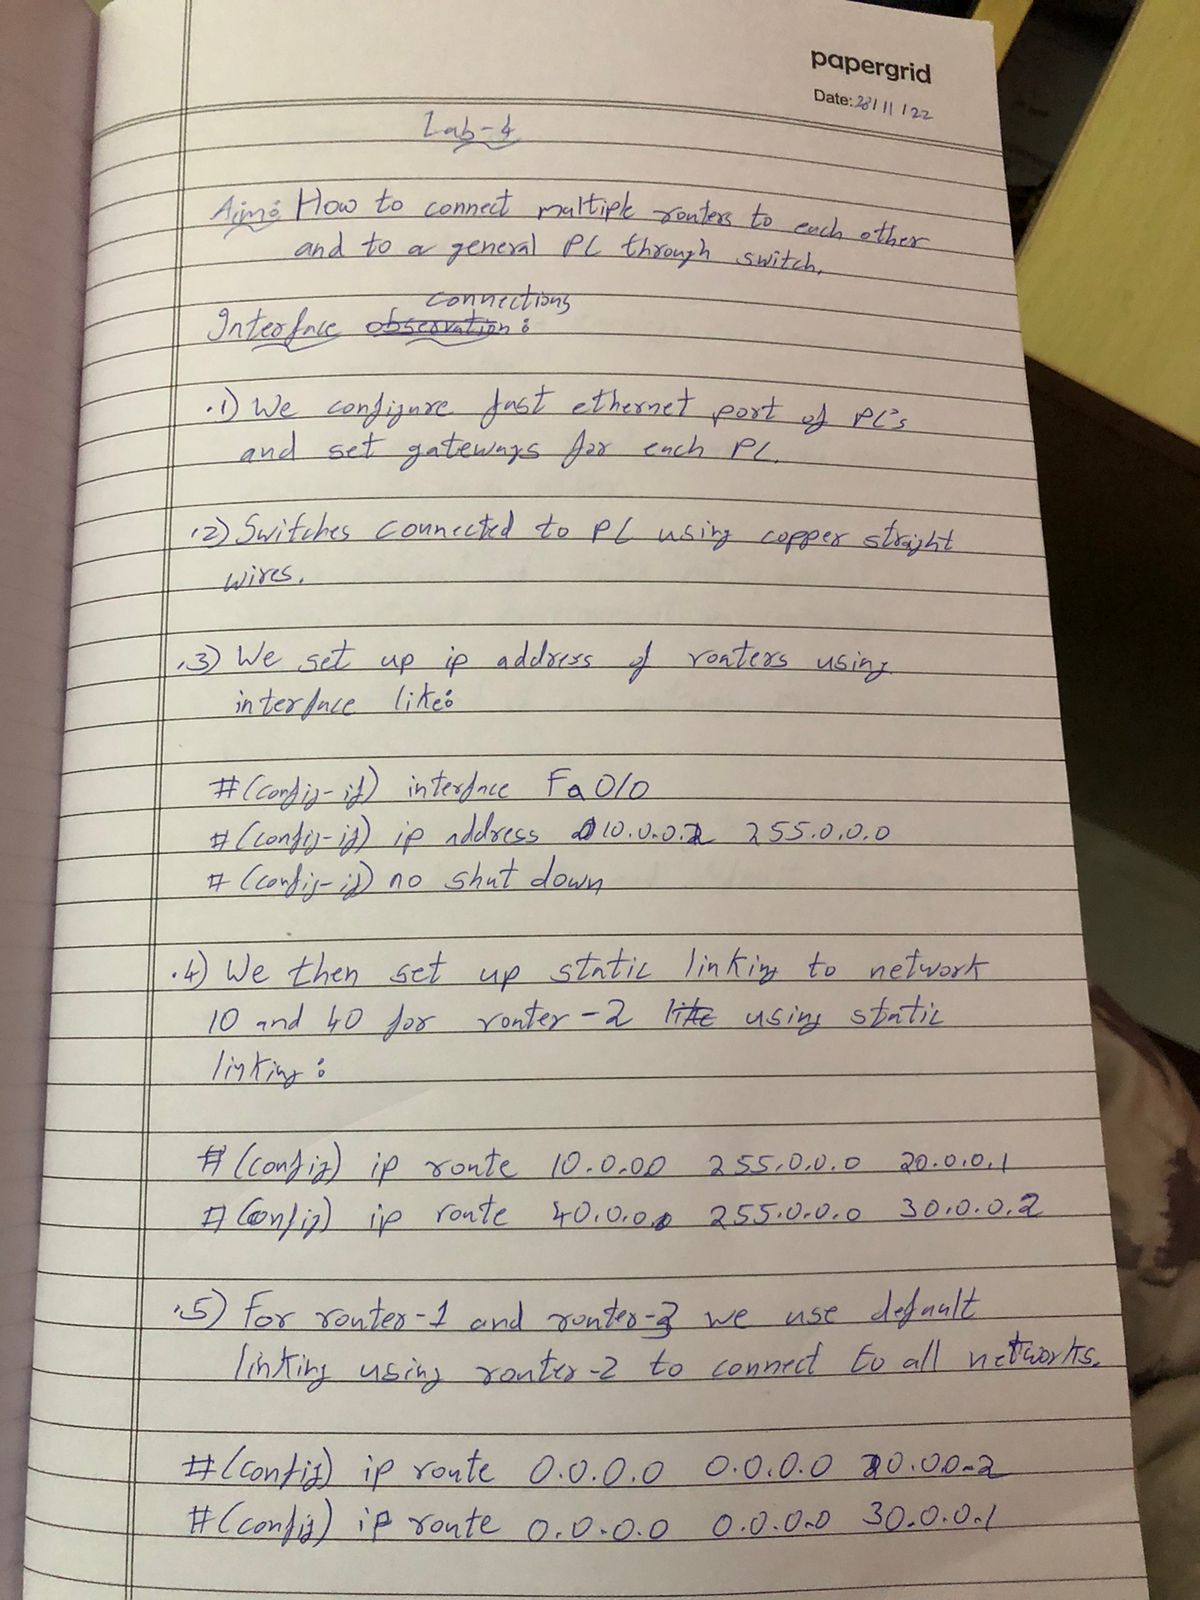 papergrid
Date: 28/11/22
Lab-4
Aim: How to connect multiple routers to each other
and to a general PC through switch.
connections
Interface observation:
.1) We configure fast ethernet port of PC's
and set gateways for each PC.
.2) Switches connected to PC using copper straight
wires.
.3) We set up ip address of routers using
interface like:
#(config-if) interface Fa0/0
#(config-if) ip address 10.0.0.2 255.0.0.0
#(config-if) no shut down
.4) We then set up static linking to network
10 and 40 for router-2 like using static
linking:
#(config) ip route 10.0.00 255.0.0.0 20.0.0.1
#(config) ip route 40.0.0.0 255.0.0.0 30.0.0.2
.5) For router-1 and router-3 we use default
linking using router-2 to connect to all networks.
#(config) ip route 0.0.0.0 0.0.0.0 20.00.2
#(config) ip route 0.0.0.0 0.0.0.0 30.0.0.1